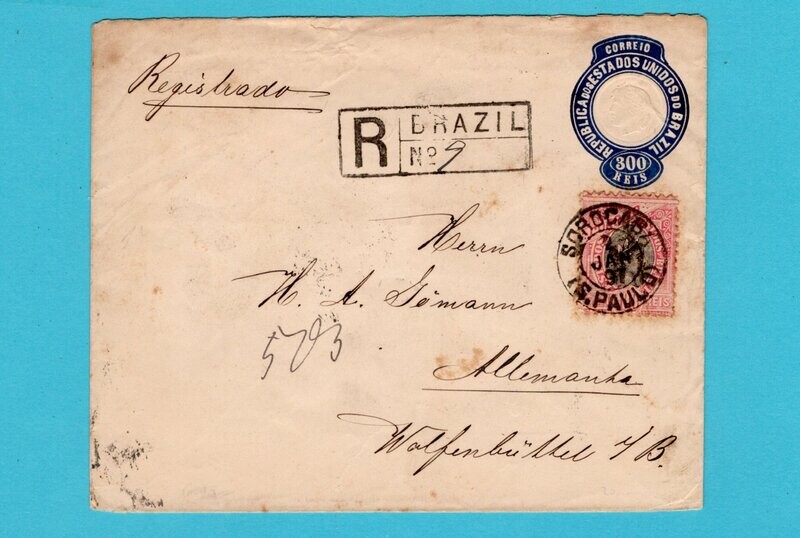 Registrado
CORREIO
REPUBLICA DOS ESTADOS UNIDOS DO BRAZIL
300
REIS
R
BRAZIL
Nº 9
SOROCABA
JAN
97
(S. PAULO)
REIS
Herrn
H. A. Gömann
503
Allemanha
Wolfenbüttel i/B.